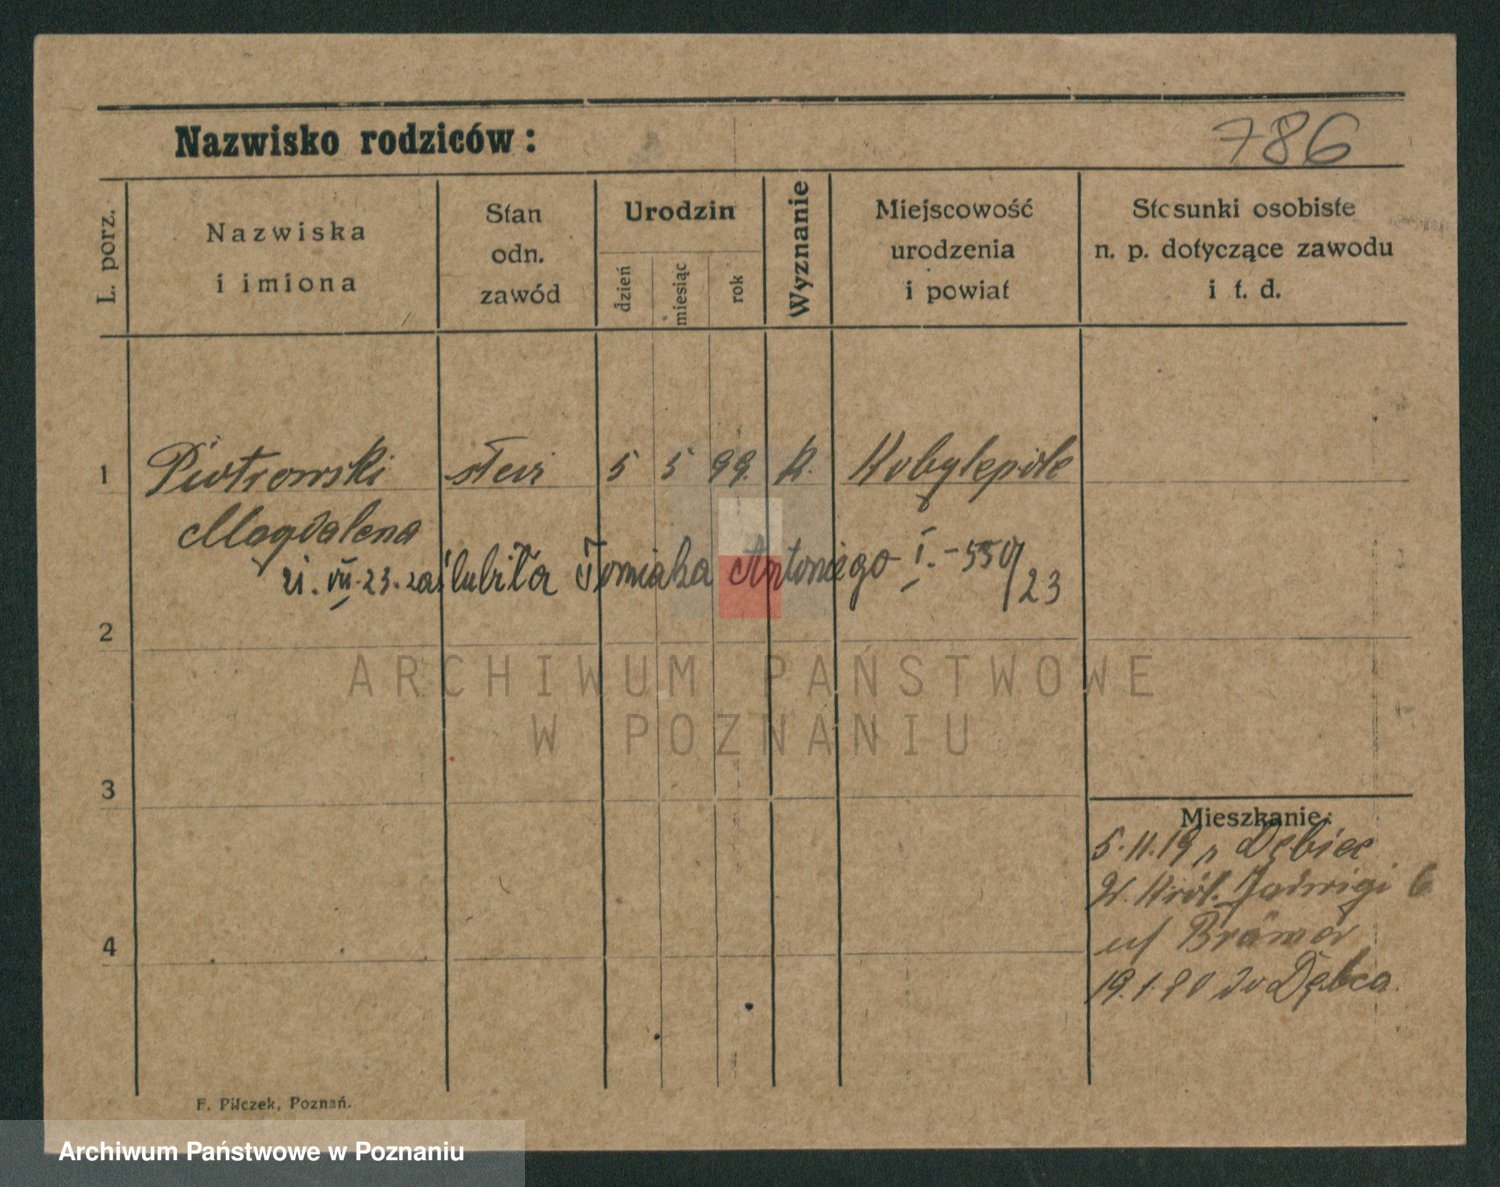 Nazwisko rodziców:
786
L. porz.
Nazwiska
i imiona
Stan
odn.
zawód
Urodzin
dzień
miesiąc
rok
Wyznanie
Miejscowość
urodzenia
i powiat
Stosunki osobiste
n. p. dotyczące zawodu
i t. d.
1 Piotrowski 5 5 99. k. Kobylepole
Magdalena
21. VII. 23. zaślubiła Tomiaka Antoniego I. - 550/23
2
ARCHIWUM PAŃSTWOWE
W POZNANIU
3
Mieszkanie:
5.11.19 Dębiec
Król. Jadwigi 6
4
19.1.20 do Dębca.
F. Pilczek, Poznań.
Archiwum Państwowe w Poznaniu